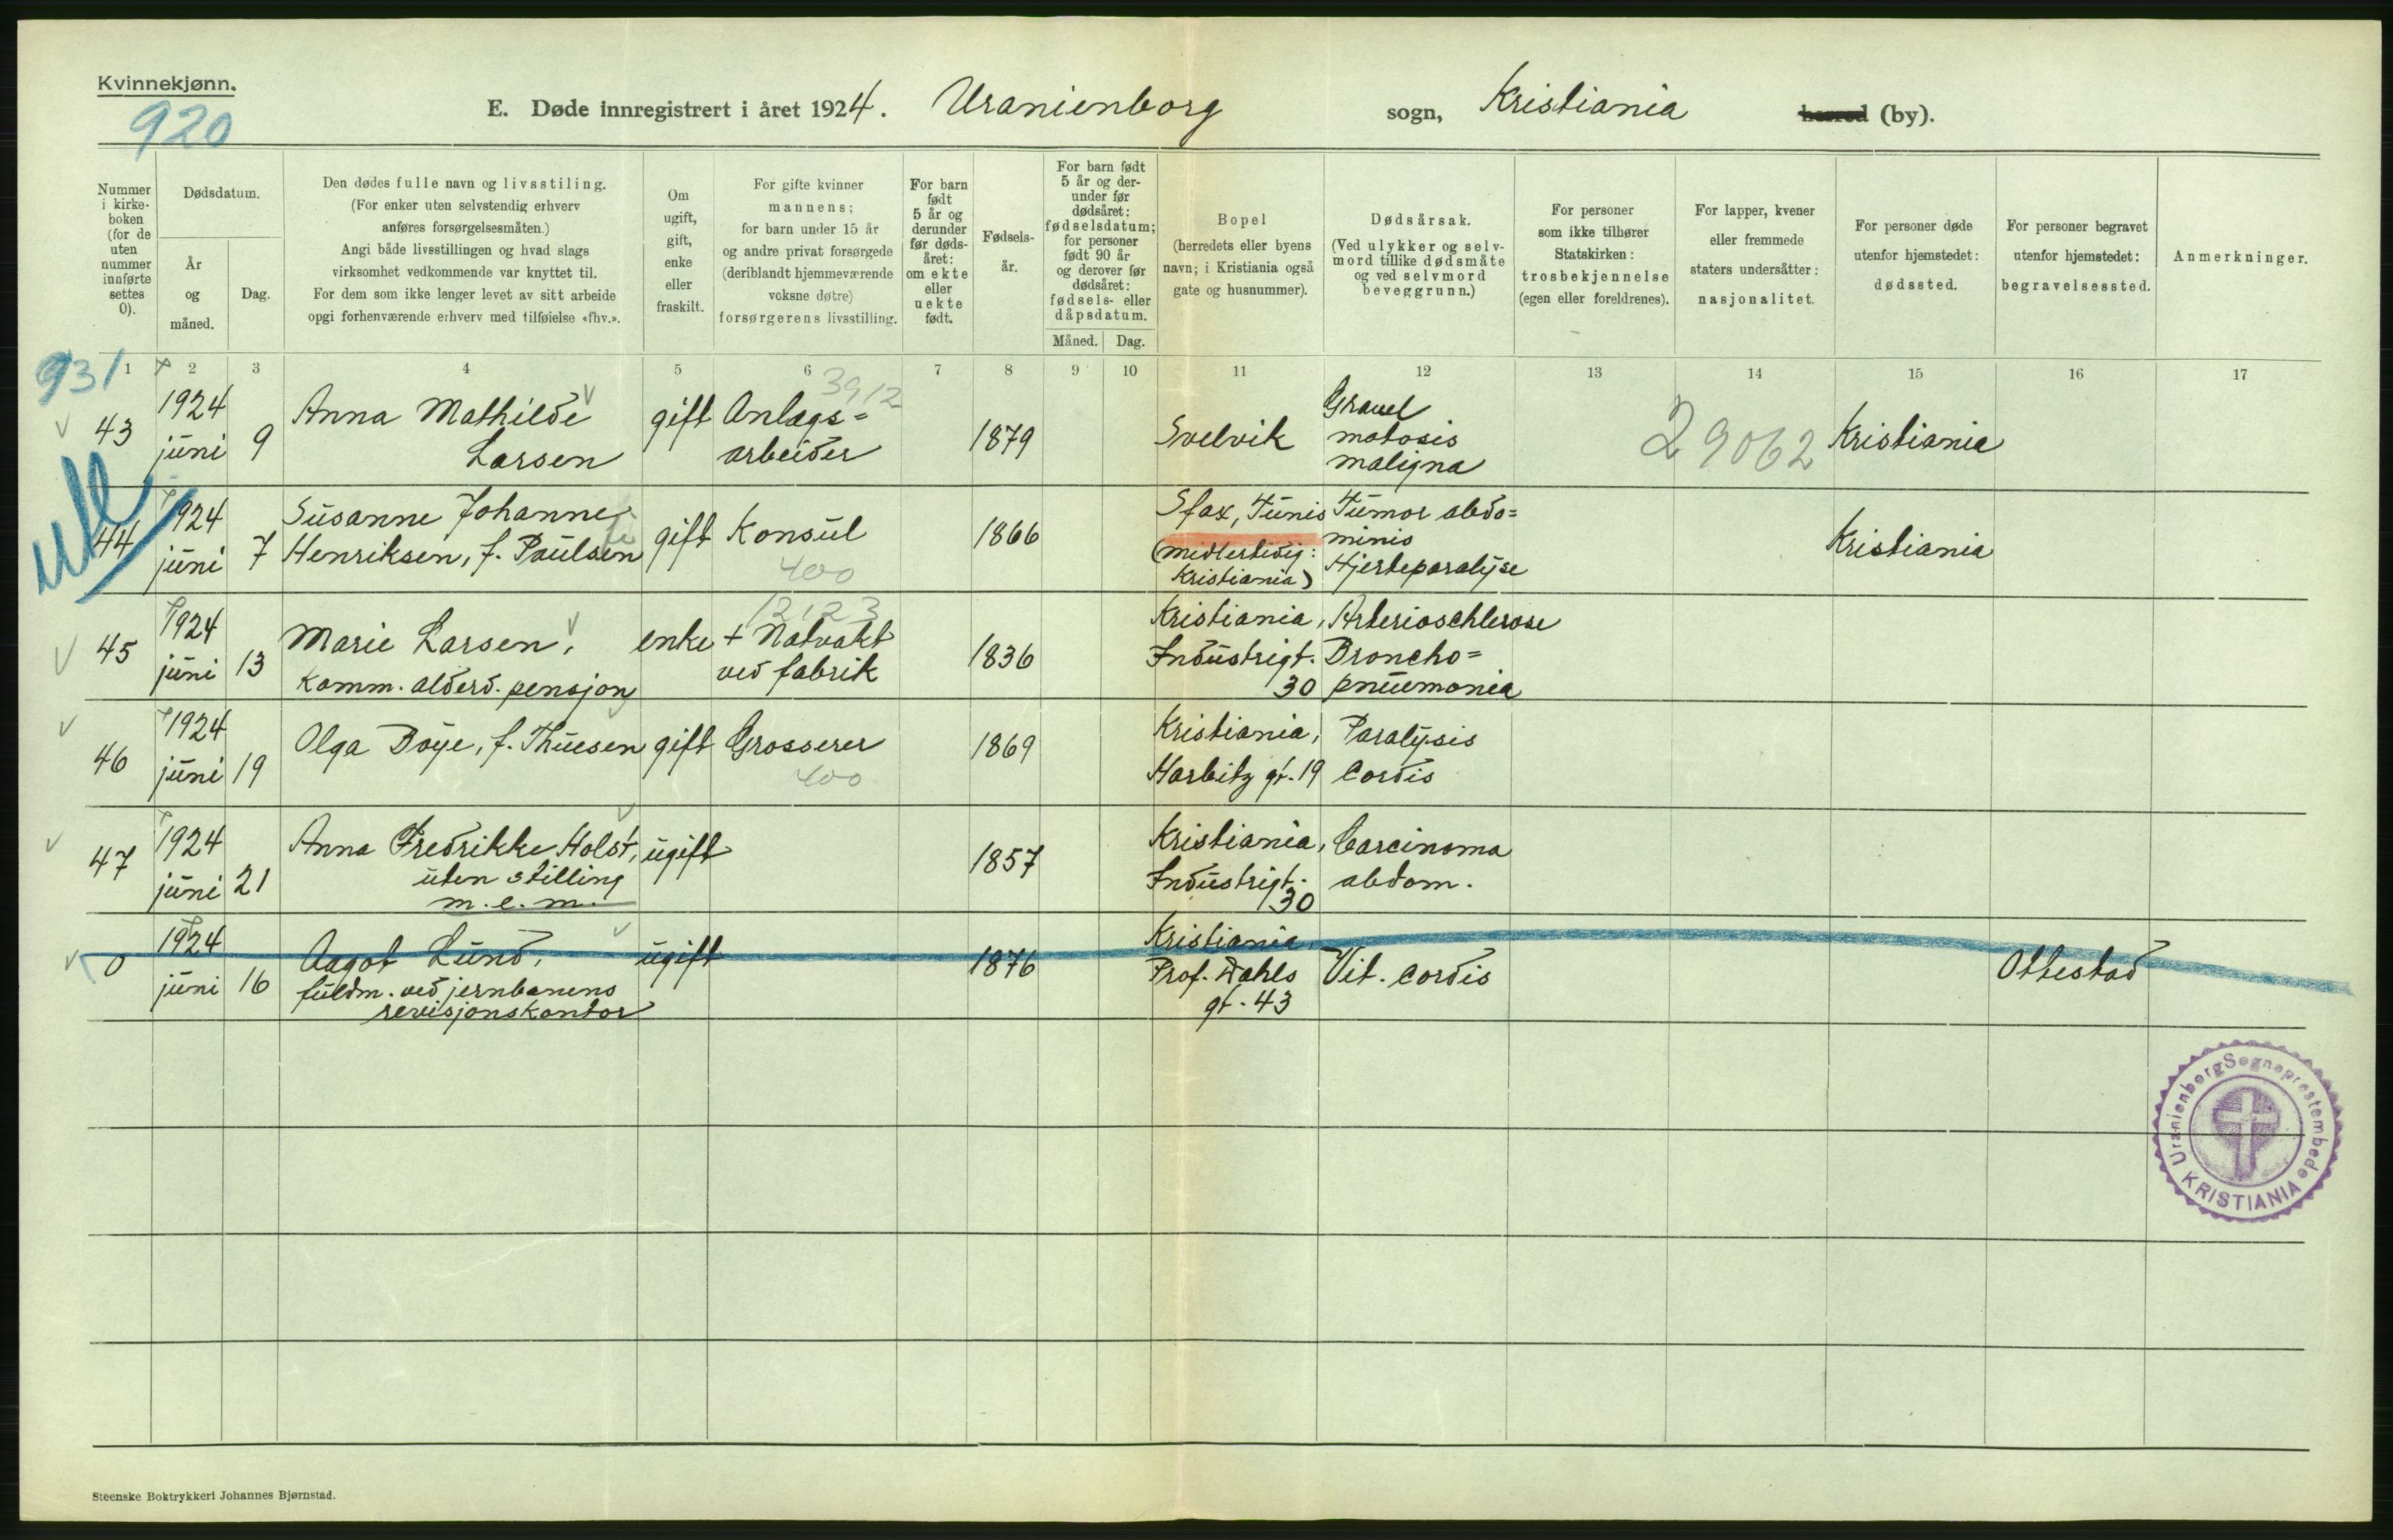 Kvinnekjønn.
920
E. Døde innregistrert i året 1924. Uranienborg sogn, Kristiania herred (by).
Nummer i kirke-boken (for de uten nummer innførte settes 0).
Dødsdatum.
År og måned.
Dag.
Den dødes fulle navn og livsstiling.
(For enker uten selvstendig erhverv
anføres forsørgelsesmåten.)
Angi både livsstillingen og hvad slags
virksomhet vedkommende var knyttet til.
For dem som ikke lenger levet av sitt arbeide
opgi forhenværende erhverv med tilføielse «fhv.».
Om ugift, gift, enke eller fraskilt.
For gifte kvinner
mannens;
for barn under 15 år
og andre privat forsørgede
(deriblandt hjemmeværende
voksne døtre)
forsørgerens livsstilling.
For barn født 5 år og derunder før døds-året: om ekte eller uekte født.
Fødsels-år.
For barn født
5 år og der-
under før
dødsåret:
fødselsdatum;
for personer
født 90 år
og derover før
dødsåret:
fødsels- eller
dåpsdatum.
Måned. Dag.
Bopel
(herredets eller byens
navn; i Kristiania også
gate og husnummer).
Dødsårsak.
(Ved ulykker og selv-
mord tillike dødsmåte
og ved selvmord
beveggrunn.)
For personer
som ikke tilhører
Statskirken:
trosbekjennelse
(egen eller foreldrenes).
For lapper, kvener
eller fremmede
staters undersåtter:
nasjonalitet.
For personer døde
utenfor hjemstedet:
dødssted.
For personer begravet
utenfor hjemstedet:
begravelsessted.
Anmerkninger.
1 2 3 4 5 6 7 8 9 10 11 12 13 14 15 16 17
931
43 1924 juni 9 Anna Mathilde Larsen gift Anlægs=arbeider 3912 1879 Svelvik Granulomatosis maligna 29062 Kristiania
utl
44 1924 juni 7 Susanne Johanne Henriksen, f. Paulsen gift Konsul 400 1866 Sfax, Tunis (midlertidig: Kristiania) Tumor abdo=minis Hjerteparalyse Kristiania
45 1924 juni 13 Marie Larsen, Komm. alderd. pensjon enke + Natvakt ved fabrik 12123 1836 Kristiania, Industrigt. 30 Arterioschlerose Broncho=pneumonia
46 1924 juni 19 Olga Bøye, f. Thuesen gift Grosserer 400 1869 Kristiania, Harbitz gt. 19 Paralysis Cordis
47 1924 juni 21 Anna Fredrikke Holst, uten stilling m.e.m. ugift 1857 Kristiania, Industrigt. 30 Carcinoma abdom.
0 1924 juni 16 Aagot Lund, fuldm. ved jernbanens revisjonskontor ugift 1876 Kristiania, Prof. Dahls gt. 43 Vit. Cordis Ottestad
Uranienborg Sogneprestembede
KRISTIANIA
Steenske Boktrykkeri Johannes Bjørnstad.